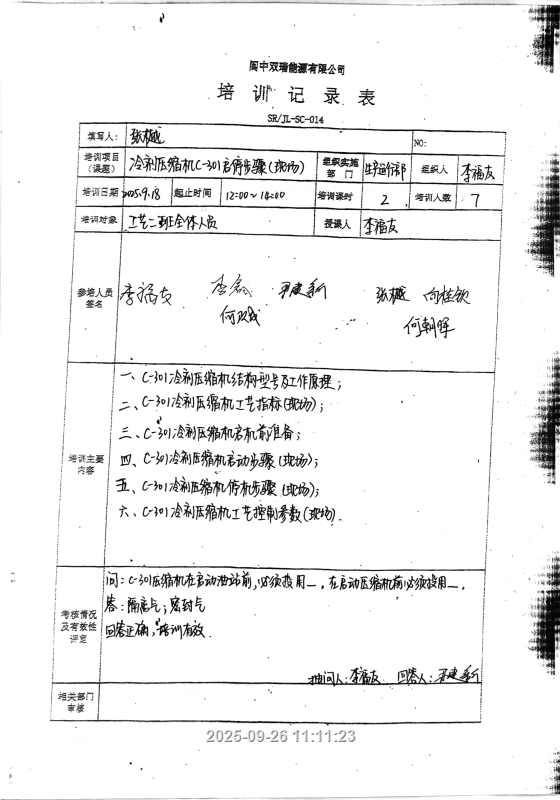 阆中双瑞能源有限公司
培训记录表
SR/JL-SC-014
填写人： 张樾 NO:
培训项目（课题） 冷剂压缩机C-301启停步骤(现场) 组织实施部门 生产运行部 组织人 李福友
培训日期 2025.9.18 起止时间 12:00~14:00 培训课时 2 培训人数 7
培训对象 工艺二班全体人员 授课人 李福友
参培人员签名 李福友 张樾 向桂钦
何朝晖
培训主要内容
一、C-301冷剂压缩机结构型号及工作原理；
二、C-301冷剂压缩机工艺指标(现场)；
三、C-301冷剂压缩机启机前准备；
四、C-301冷剂压缩机启动步骤(现场)；
五、C-301冷剂压缩机停机步骤(现场)；
六、C-301冷剂压缩机工艺控制参数(现场).
考核情况及有效性评定
问：C-301压缩机在启动油站前,必须投用__，在启动压缩机前必须投用__.
答：隔离气；密封气
回答正确，培训有效.
抽问人：李福友 回答人：
相关部门审核
2025-09-26 11:11:23